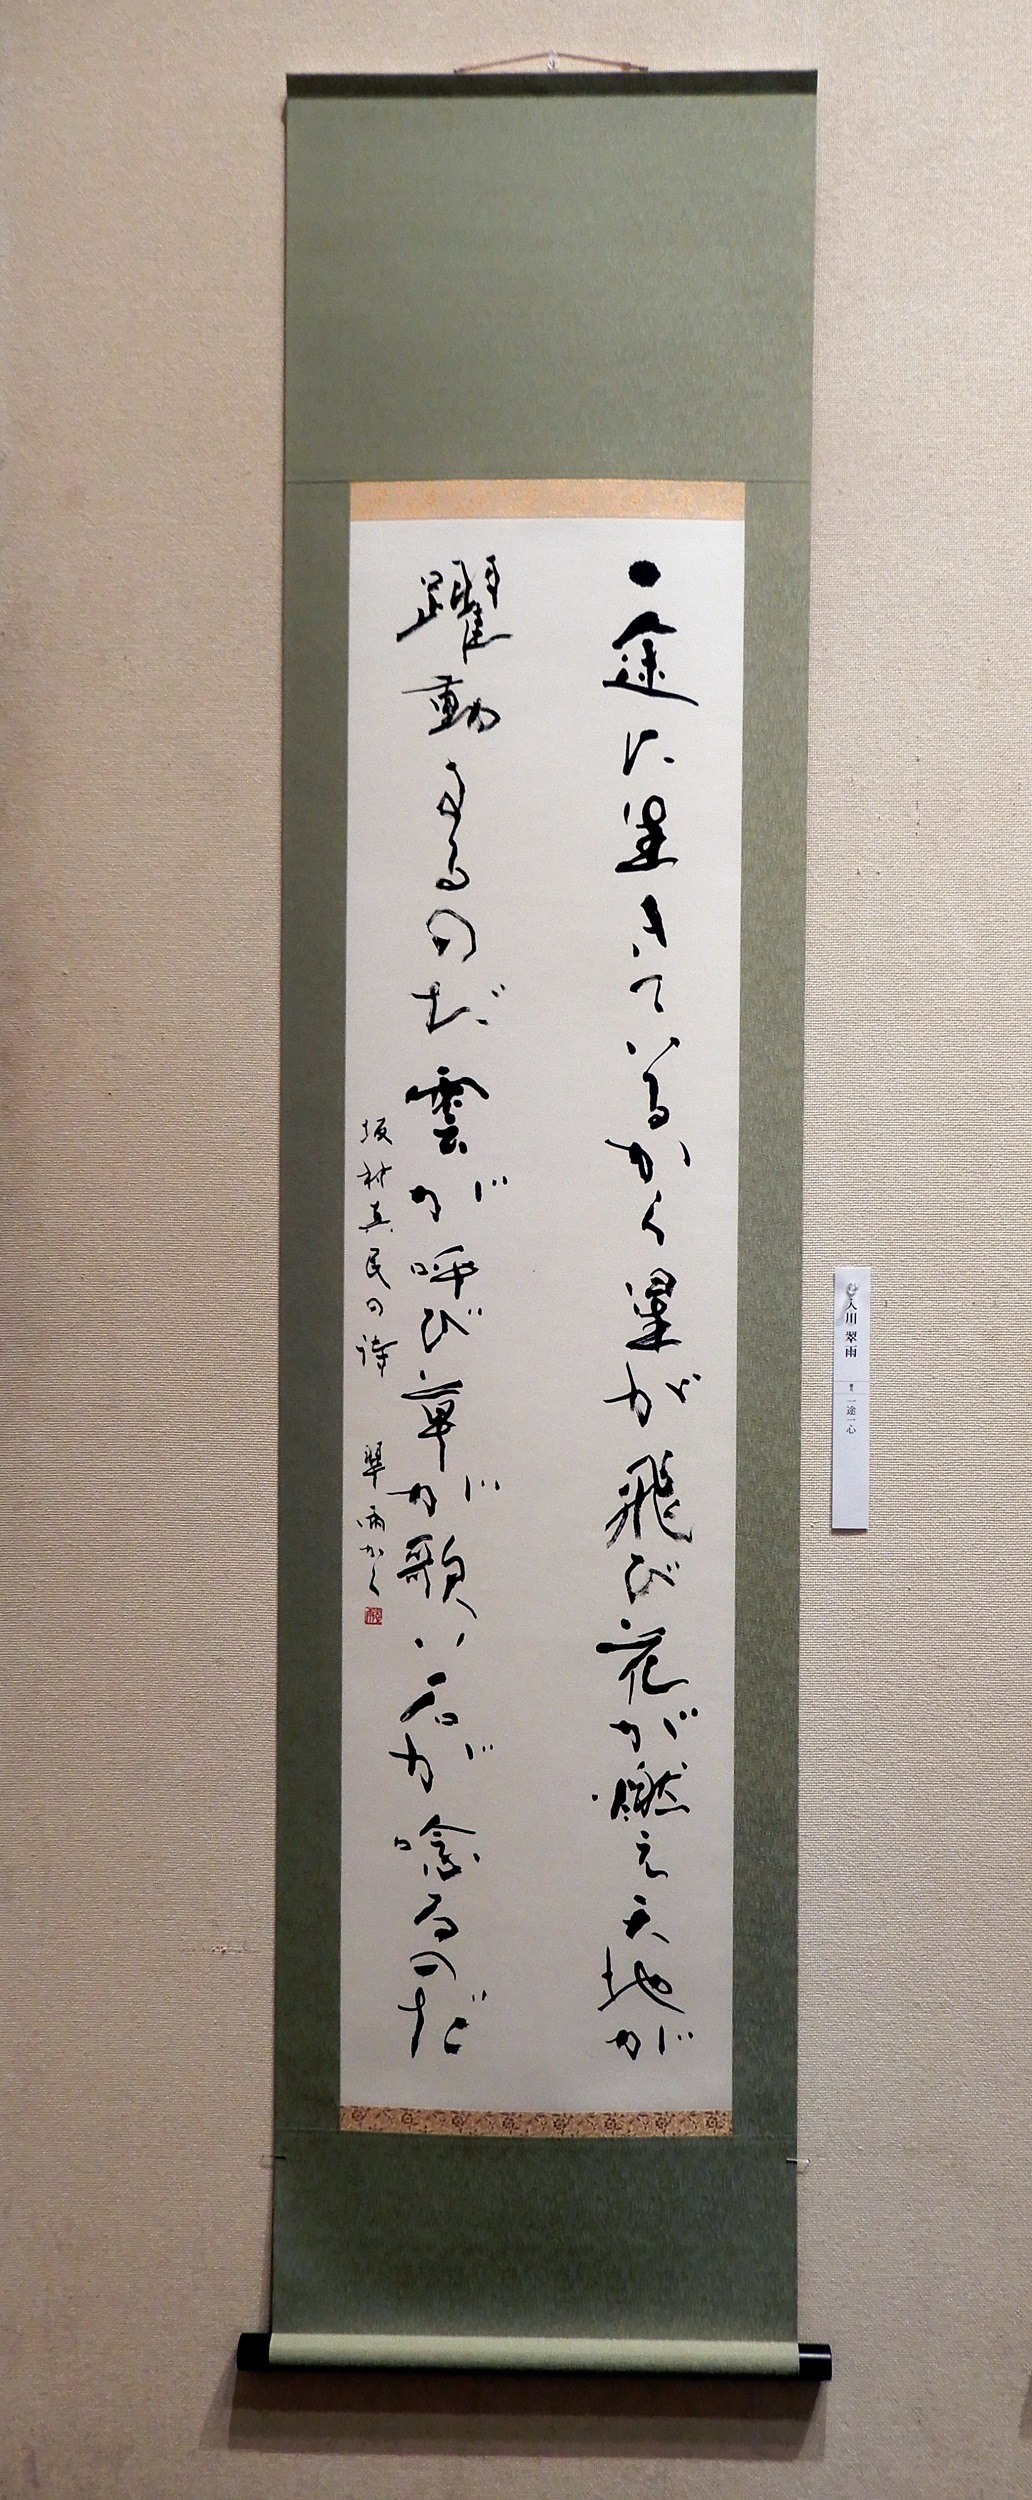 一途に生きているから星が飛び花が燃え天地が
躍動するのだ雲が呼び草が歌い石が唸るのだ
坂村真民の詩 翠雨かく
入川 翠雨 一途一心